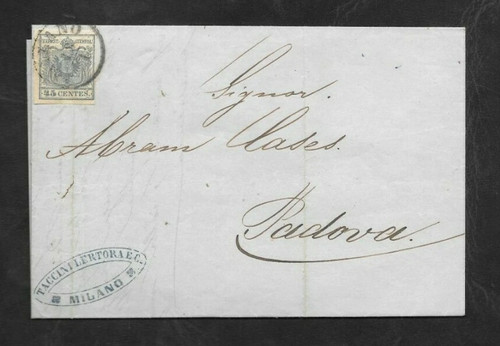 MILANO
45 CENTES.
Signor.
Abram Vases.
Padova.
TACCINI LERTORA E C.
MILANO